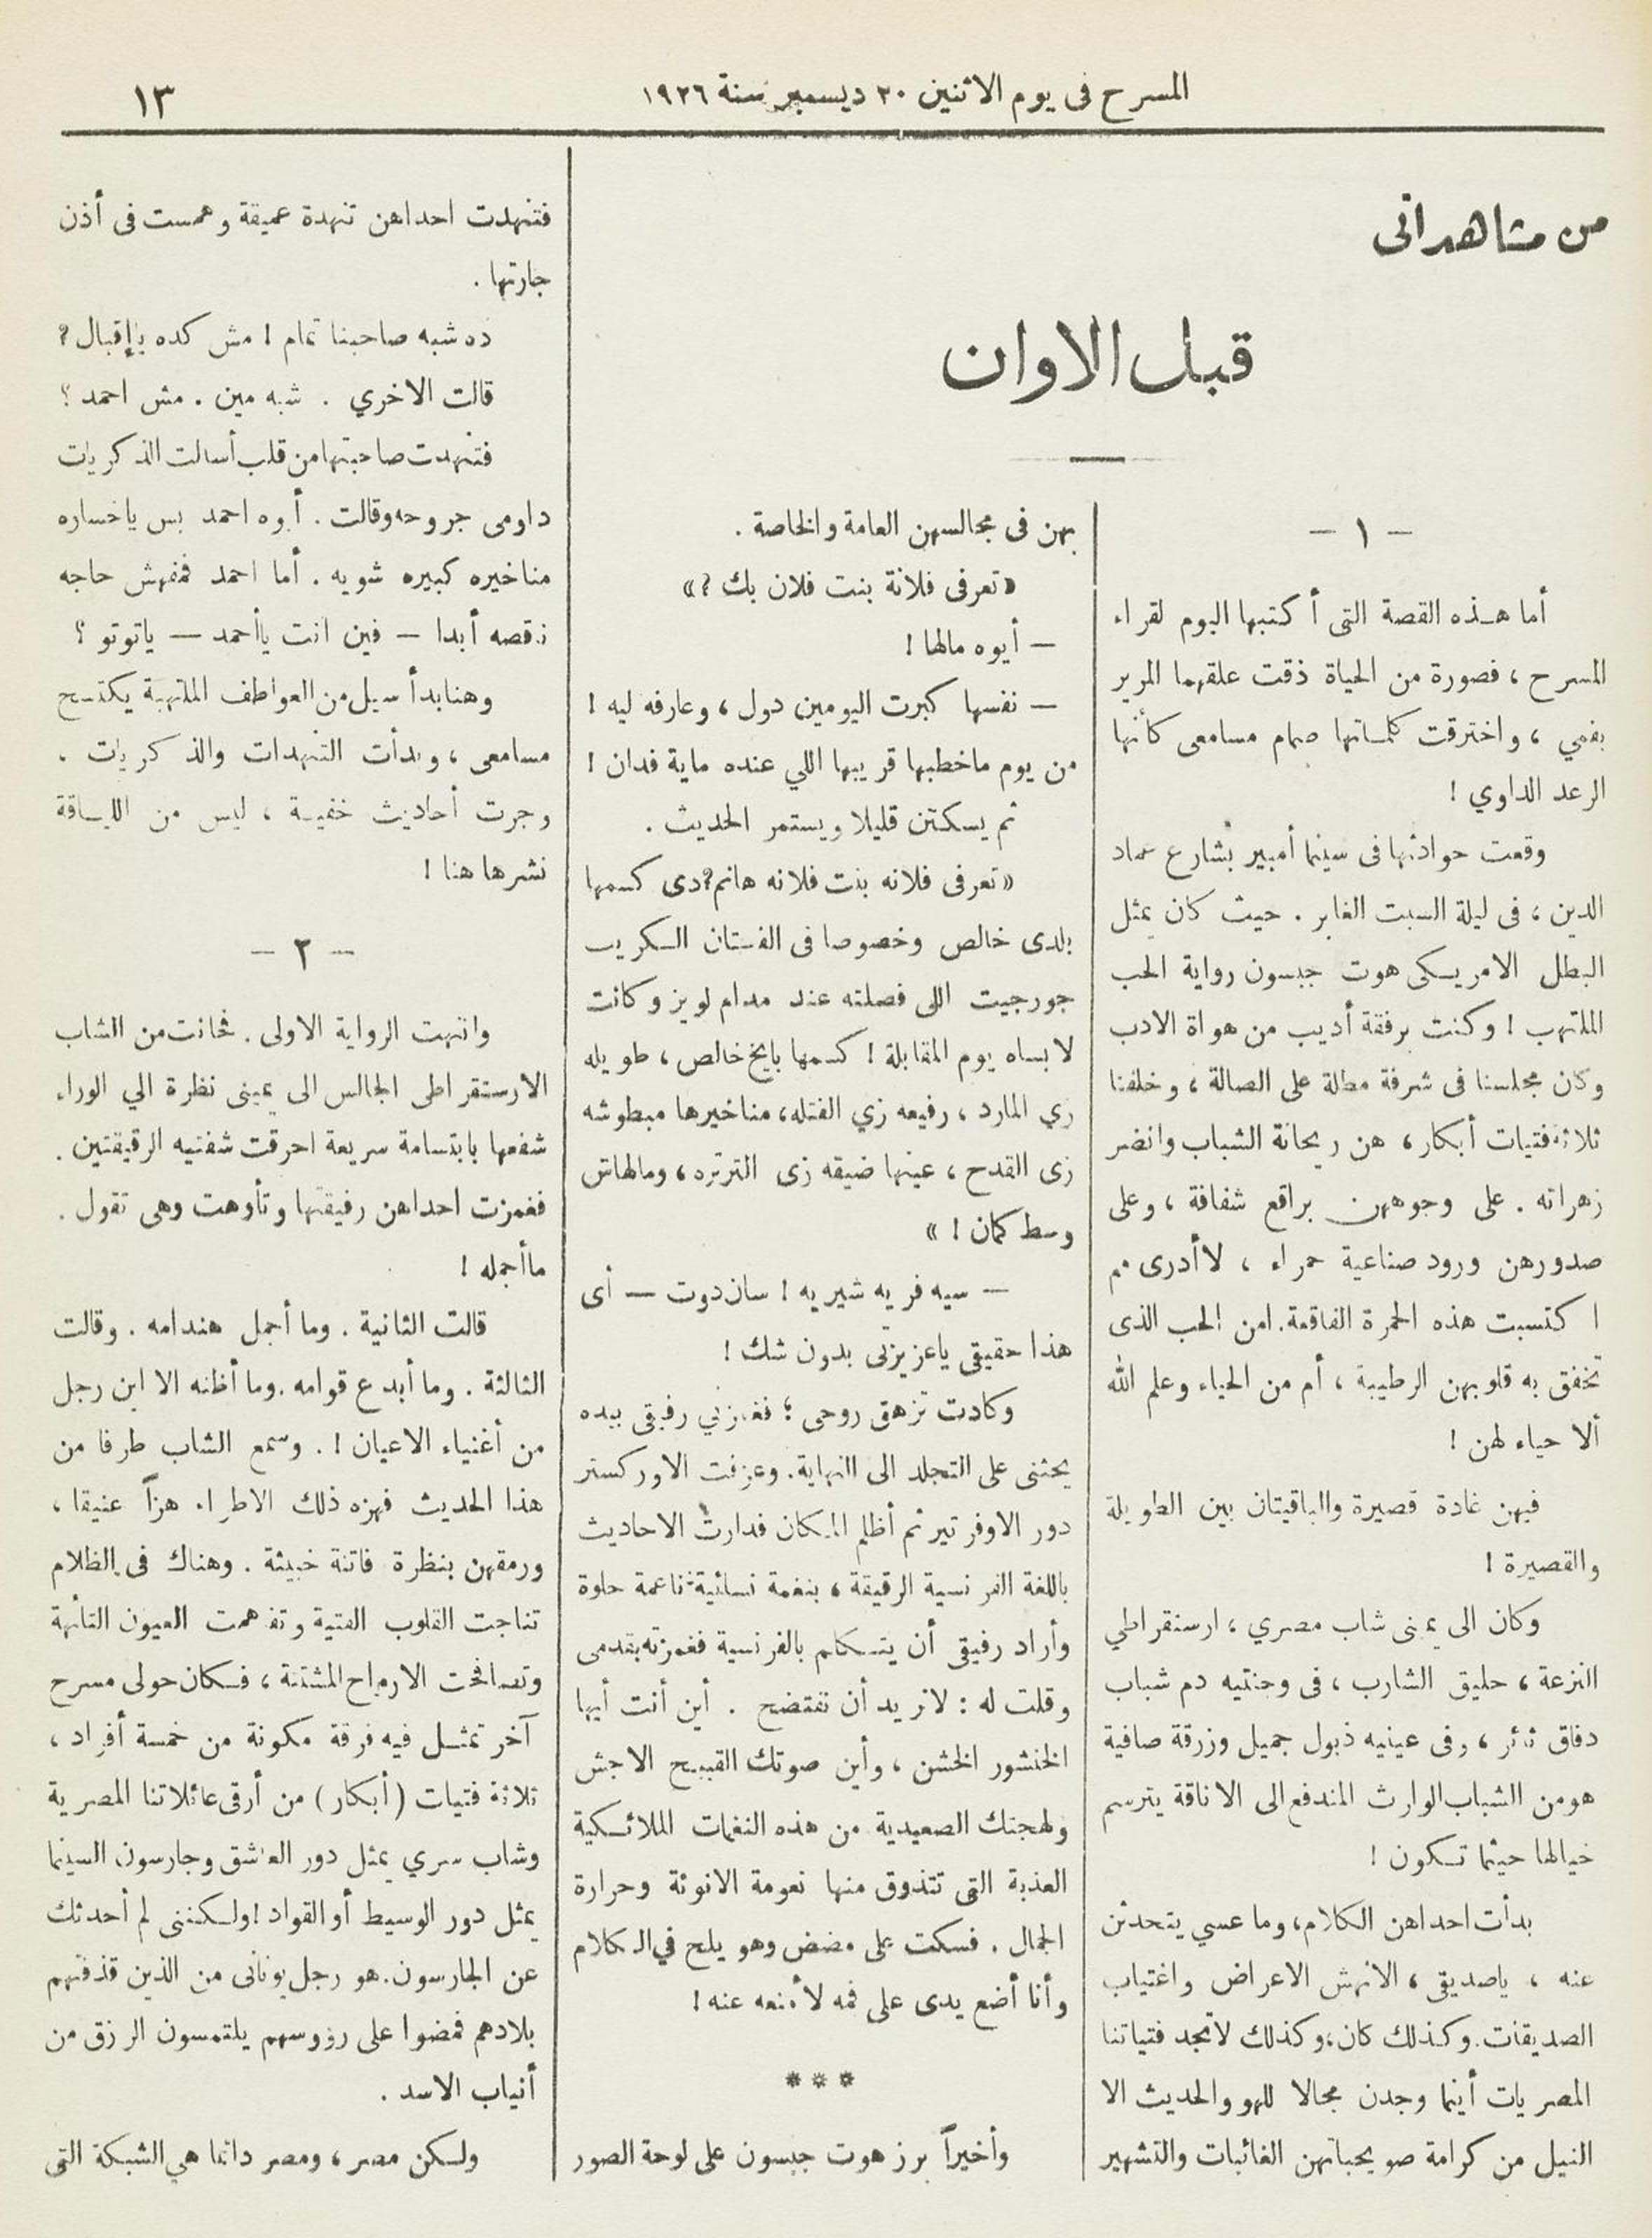 المسرح فى يوم الاثنين ٢٠ ديسمبر سنة ١٩٢٦
١٣
من مشاهداتى
قبل الاوان
— ١ —
أما هذه القصة التى أكتبها اليوم لقراء
المسرح ، فصورة من الحياة ذقت علقمها المرير
بفمي ، واخترقت كلماتها صمام مسامعى كأنها
الرعد الداوي !
وقعت حوادثها فى سينما أمبير بشارع عماد
الدين ، فى ليلة السبت الغابر . حيث كان يمثل
البطل الامريكى هوت جبسون رواية الحب
الملتهب ! وكنت برفقة أديب من هواة الادب
وكان مجلسنا فى شرفة مطلة على الصالة ، وخلفنا
ثلاثة فتيات أبكار ، هن ريحانة الشباب وانضر
زهراته . على وجوههن براقع شفافة ، وعلى
صدورهن ورود صناعية حمراء ، لا أدرى مم
اكتسبت هذه الحمرة الفاقعة . امن الحب الذى
تخفق به قلوبهن الرطيبة ، أم من الحياء وعلم الله
ألا حياء لهن !
فيهن غادة قصيرة والباقيتان بين الطويلة
والقصيرة !
وكان الى يمنى شاب مصري ، ارستقراطي
النزعة ، حليق الشارب ، فى وجنتيه دم شباب
دفاق ثائر ، وفى عينيه ذبول جميل وزرقة صافية
هو من الشباب الوارث المندفع الى الاناقة يترسم
خيالها حيثما تكون !
بدأت احداهن الكلام ، وما عسي يتحدثن
عنه ، ياصديقى ، الا نهش الاعراض واغتياب
الصديقات . وكذلك كان ، وكذلك لا تجد فتياتنا
المصريات أينما وجدن مجالا للهو والحديث الا
النيل من كرامة صويحباتهن الغائبات والتشهير
بهن فى مجالسهن العامة والخاصة .
« تعرفى فلانة بنت فلان بك ؟ »
— أيوه مالها !
— نفسها كبرت اليومين دول ، وعارفه ليه !
من يوم ماخطبها قريبها اللي عنده ماية فدان !
ثم يسكتن قليلا ويستمر الحديث .
« تعرفى فلانه بنت فلانه هانم ؟ دى كسمها
بلدى خالص وخصوصا فى الفستان الكريب
جورجيت اللى فصلته عند مدام لويز وكانت
لابساه يوم المقابلة ! كسمها بايخ خالص ، طويله
زي المارد ، رفيعه زي الفتله ، مناخيرها مبطوشه
زى القدح ، عينها ضيقه زى الترتره ، ومالهاش
وسط كمان ! »
— سيه فريه شيريه ! سان دوت — أى
هذا حقيقى ياعزيزتى بدون شك !
وكادت تزهق روحى ؛ فغمزني رفيقى بيده
يحثنى على التجلد الى النهاية . وعزفت الاوركستر
دور الاوفرتير ثم أظلم المكان فدارت الاحاديث
باللغة الفرنسية الرقيقة ، بنغمة نسائية ناعمة حلوة
وأراد رفيقى أن يتكلم بالفرنسية فغمزته بقدمى
وقلت له : لا نريد أن نفتضح . أين أنت أيها
الخنشور الخشن ، وأين صوتك القبيح الاجش
ولهجتك الصعيدية من هذه النغمات الملائكية
العذبة التى تتذوق منها نعومة الانوثة وحرارة
الجمال . فسكت على مضض وهو يلح في الكلام
وأنا أضع يدى على فمه لأمنعه عنه !
* * *
وأخيراً برز هوت جبسون على لوحة الصور
فتنهدت احداهن تنهدة عميقة وهمست فى أذن
جارتها .
ده شبه صاحبنا تمام ! مش كده يإإقبال ؟
قالت الاخري . شبه مين . مش احمد ؟
فتنهدت صاحبتها من قلب أسالت الذكريات
دوامى جروحه وقالت . أيوه احمد بس ياخساره
مناخيره كبيره شويه . أما احمد فمفهش حاجه
ناقصه أبدا — فين انت ياأحمد — ياتوتو ؟
وهنا بدأ سيل من العواطف الملتهبة يكتسح
مسامعى ، وبدأت التنهدات والذكريات .
وجرت أحاديث خفية ، ليس من اللياقة
نشرها هنا !
— ٢ —
وانتهت الرواية الاولى . فحانت من الشاب
الارستقراطى الجالس الى يمينى نظرة الي الوراء
شفعها بابتسامة سريعة احرقت شفتيه الرقيقتين .
فغمزت احداهن رفيقتها وتأوهت وهى تقول .
ماأجمله !
قالت الثانية . وما أجمل هندامه . وقالت
الثالثة . وما أبدع قوامه . وما أظنه الا ابن رجل
من أغنياء الاعيان ! . وسمع الشاب طرفا من
هذا الحديث فهزه ذلك الاطراء هزاً عنيفا ،
ورمقهن بنظرة فاتنة خبيثة . وهناك فى الظلام
تناجت القلوب الفتية وتفاهمت العيون التائهة
وتصافحت الارواح المشتتة ، فكان حولى مسرح
آخر تمثل فيه فرقة مكونة من خمسة أفراد ،
ثلاثة فتيات ( أبكار ) من أرقى عائلاتنا المصرية
وشاب سري يمثل دور العاشق وجارسون السينما
يمثل دور الوسيط أو القواد ! ولكننى لم أحدثك
عن الجارسون . هو رجل يونانى من الذين قذفتهم
بلادهم فمضوا على رؤوسهم يلتمسون الرزق من
أنياب الاسد .
ولكن مصر ، ومصر دائما هي الشبكة التى